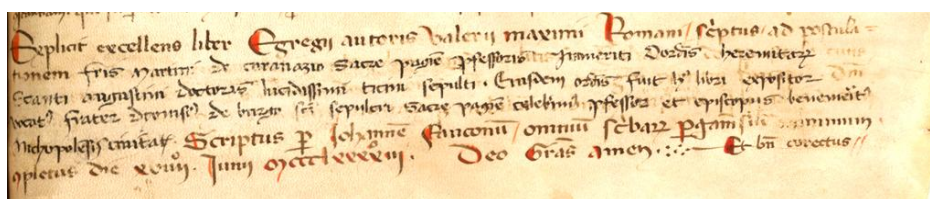 Explicit excellens liber Egregii autoris Valerii maximi Romani / sc͂ptus ad postula-
tionem fr͂is Martini de caranazio Sacre pagīe ꝓfessoris Inmeriti Ordīs heremitaꝝ
Scanti augustini doctoris lucidissimi ticini sepulti. Eiusdem ordīs fuit libri expositor
vocatꝰ frater dionisiꝰ de burgo sc͂i sepulcri Sacre pagīe celebriꝰ ꝓfessor et episcopus benemeritꝰ
Nichopolessis civitatꝭ Scriptus ꝑ Iohannē omniū minimum
ɔpletus die Iunii Mcccclxxxiii. Deo Gr͂as Amen. Et bn͂ corectus